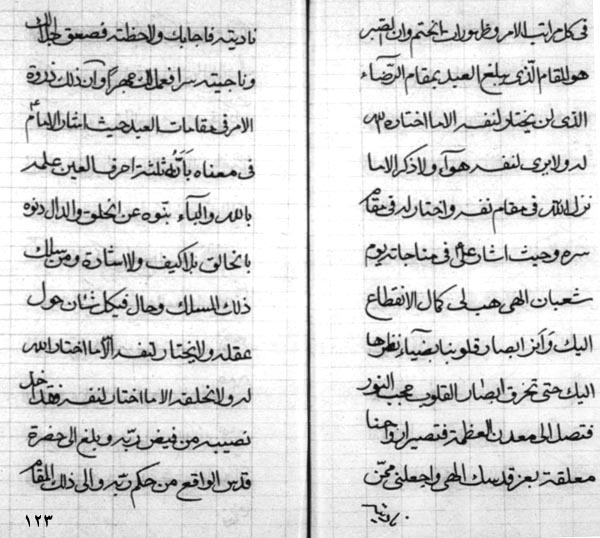 فی کل مراتب الامر و ظهورات الختم وان الصبر
هو المقام الذی یبلغ العبد بمقام الرضآء
الذی لن یختار لنفسه الا ما اختاره لله
له ولا یری لنفسه هوآء ولا ذکر الا ما
نزل الله فی مقام نفسه واختار له فی مقام
سره وحیث اشار علی فی مناجاته یوم
شعبان الهی هب لی کمال الانقطاع
الیک وَانر ابصار قلوبنا بضیآء نظرها
الیک حتی تخرق ابصار القلوب حجب النور
فتصل الی معدن العظمة فتصیر ارواحنا
معلقة بعز قدسک الهی واجعلنی ممن
نادیته
نادیته فاجابک ولاحظته فصعق لجلالک
وناجیته سرا فعمل لک جهرا وان ذلک ذروة
الامر فی مقامات العبد حیث اشار الامام
فی معناه بَانَّهُ ثلثة احرف العین علمه
بالله والبآء بنوه عن الخلق والدال دنوه
بالخالق بلا کیف ولا اشارة ومن سلک
ذلک المسلک وحال فیکل شان حول
عقله ولا یختار لنفسه الا ما اختار الله
له ولا لخلقه الا ما اختار لنفسه فقد اخذ
نصیبه من فیض ربه وبلغ الی حضرة
قدس الواقع من حکم ربه والی ذلک المقام
۱۲۳